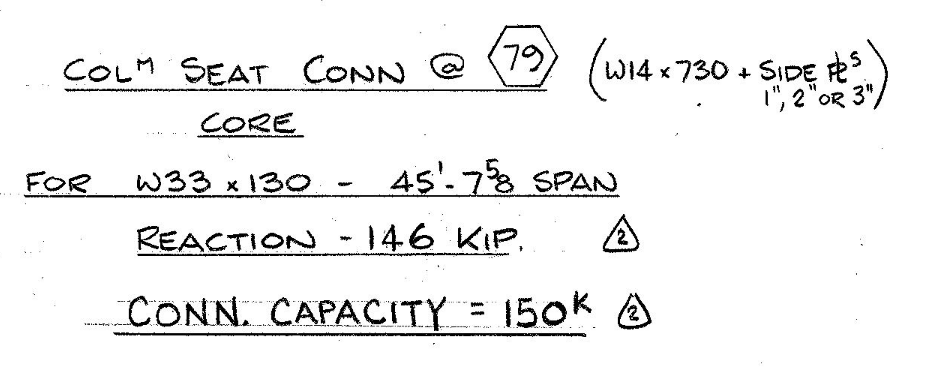 COLM SEAT CONN @ 79 (W14 x 730 + SIDE PLS
1", 2" OR 3")
CORE
FOR W33 x 130 - 45'-7 5/8 SPAN
REACTION - 146 KIP. 2
CONN. CAPACITY = 150K 2